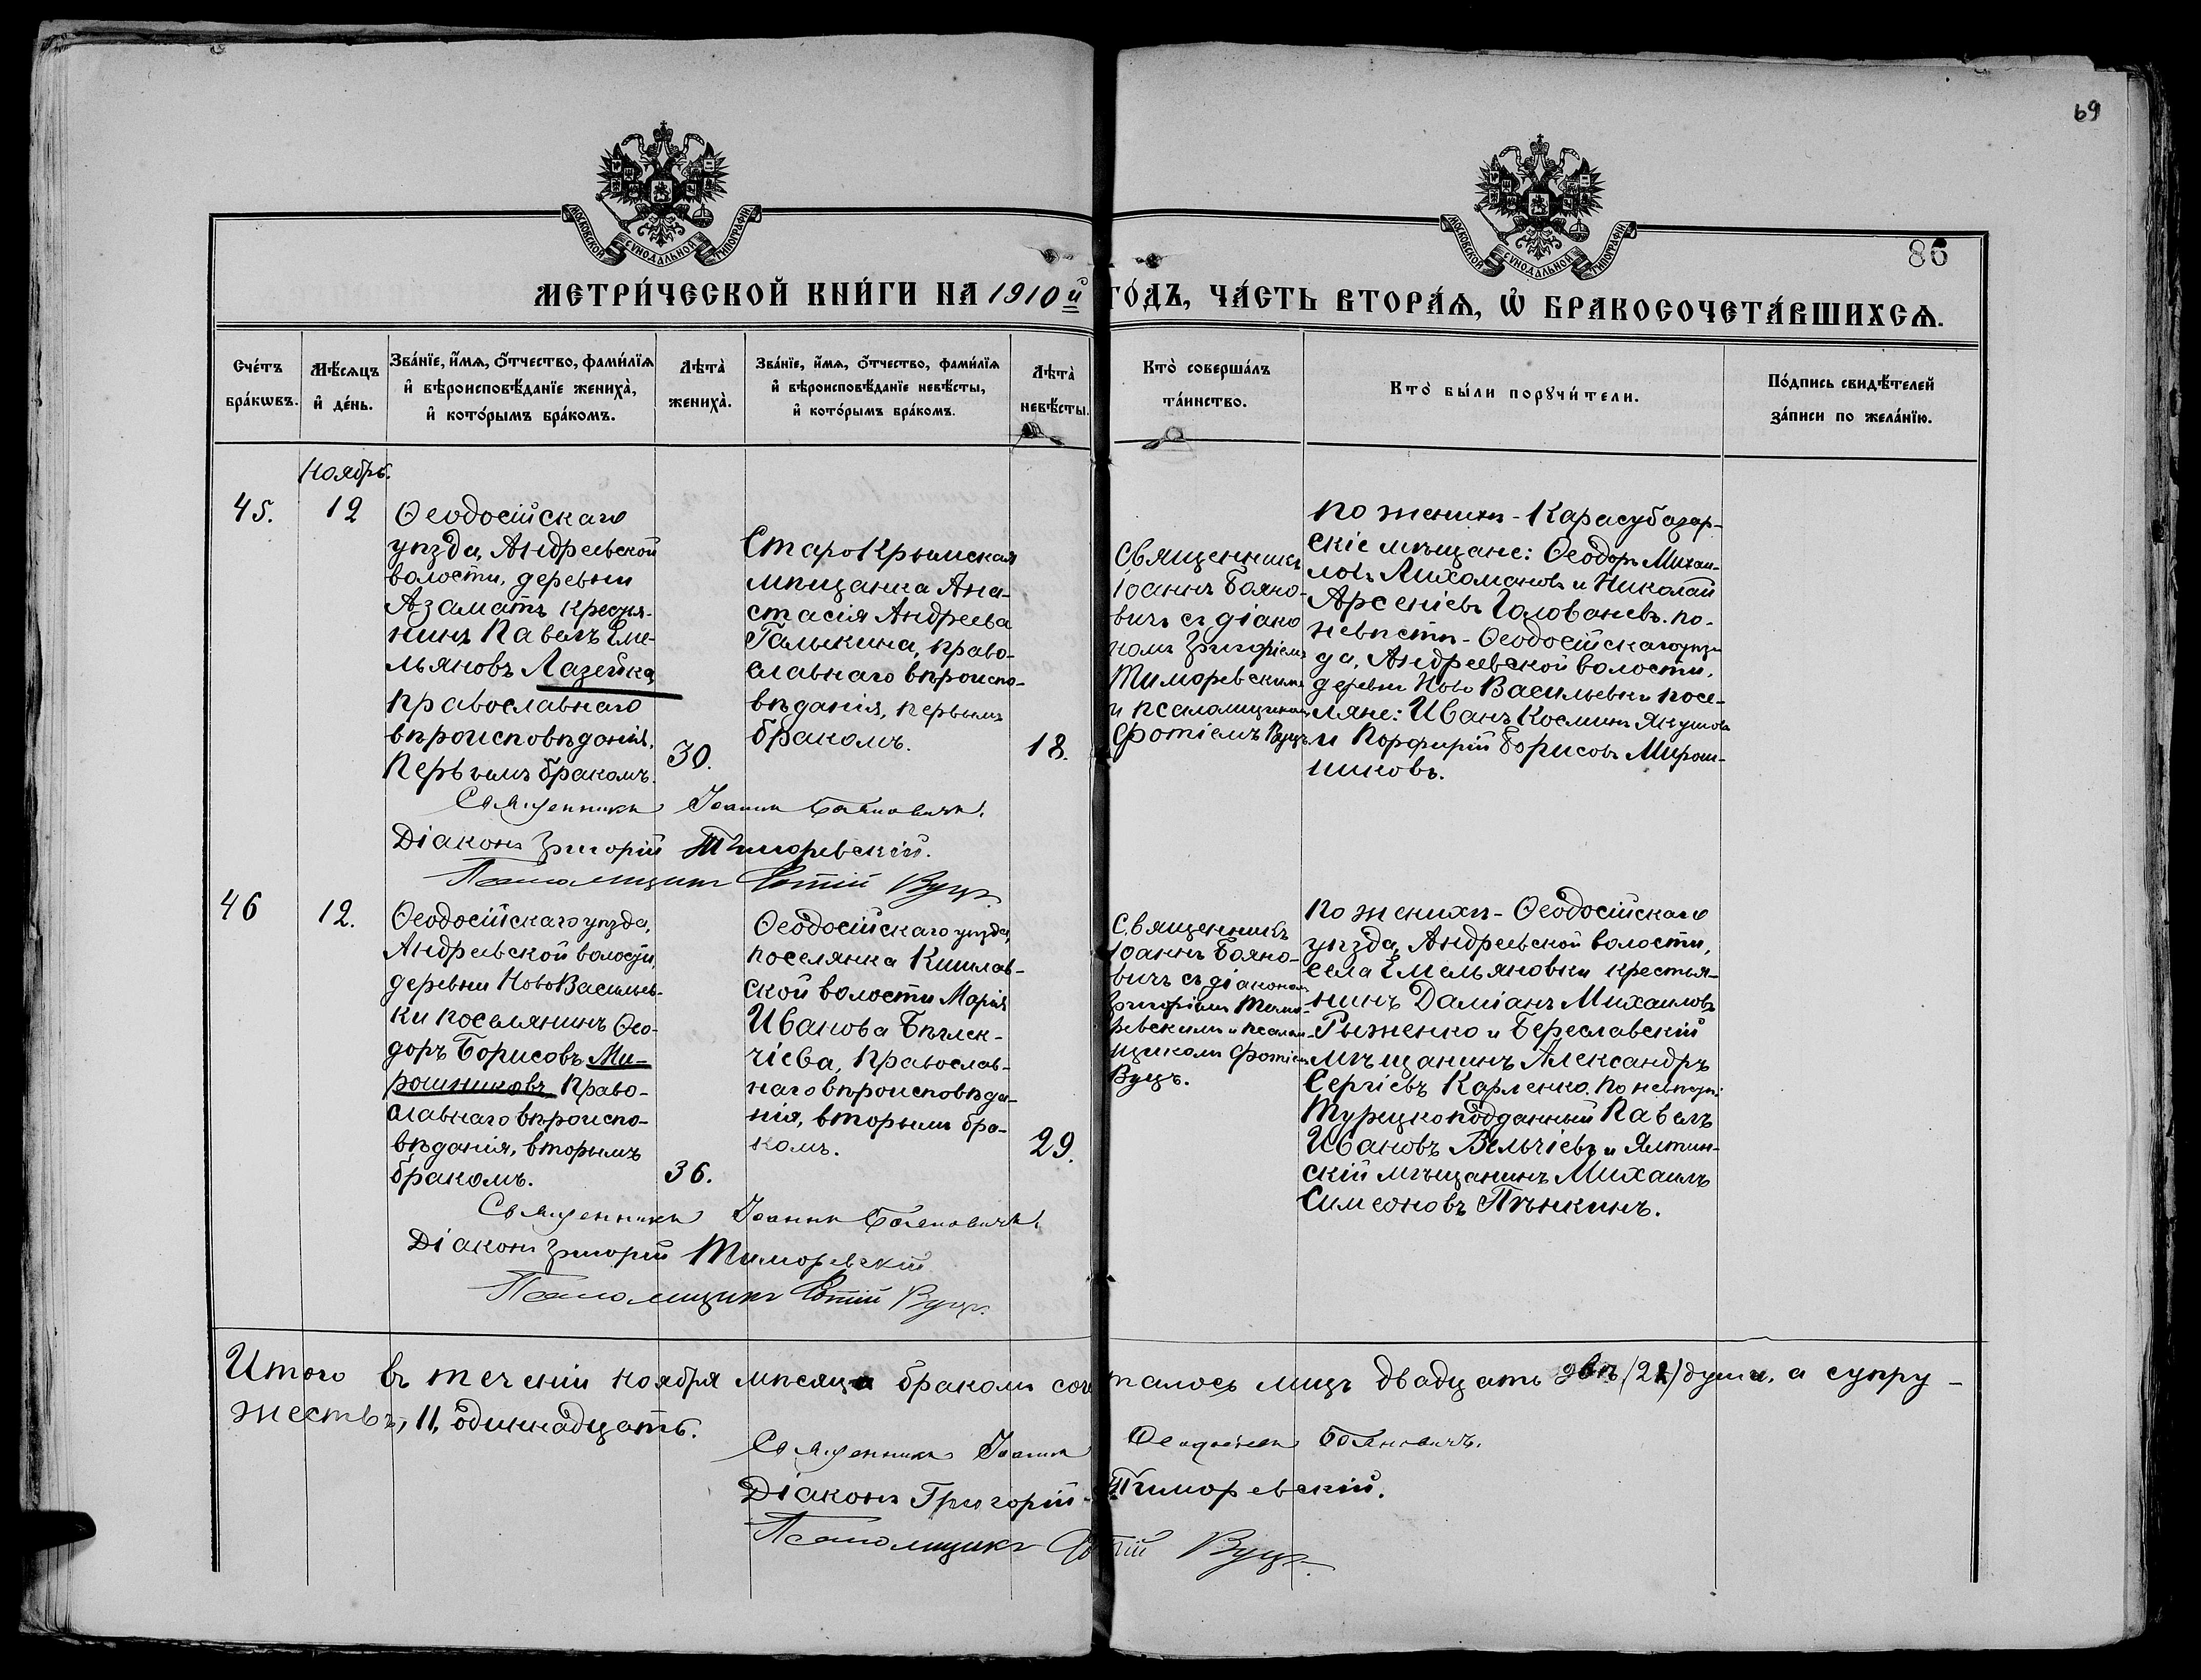 69
86
МОСКОВСКОЙ СѴНОДАЛЬНОЙ ТИПОГРАФІИ
МОСКОВСКОЙ СѴНОДАЛЬНОЙ ТИПОГРАФІИ
МЕТРИ́ЧЕСКОЙ КНИ́ГИ НА 1910й ГО́ДЪ, ЧА́СТЬ ВТОРА́Ѧ, Ѡ҆ БРАКОСОЧЕТА́ВШИХСѦ.
Сче́тъ
бра́кѡвъ.
Мѣ́сѧцъ
и҆ де́нь.
Зва́нїе, и҆́мѧ, ѻ҆́тчество, фами́лїѧ
и҆ вѣроисповѣ́данїе жениха̀,
и҆ кото́рымъ бра́комъ.
Лѣта̀
жениха̀.
Зва́нїе, и҆́мѧ, ѻ҆́тчество, фами́лїѧ
и҆ вѣроисповѣ́данїе невѣ́сты,
и҆ кото́рымъ бра́комъ.
Лѣта̀
невѣ́сты.
Кто̀ соверша́лъ
та́инство.
Кто̀ бы́ли порꙋчи́тели.
По́дпись свидѣ́телей
за́писи по жела́нїю.
Ноябрь.
45.
12
Ѳеодосійскаго
уѣзда, Андреевской
волости, деревни
Азаматъ крестья-
нинъ Павелъ Еме-
льяновъ Лазейка,
православнаго
вѣроисповѣданія,
первымъ бракомъ.
30.
СтароКрымская
мѣщанка Ана-
стасія Андреева
Галыкина, право-
славнаго вѣроиспо-
вѣданія, первымъ
бракомъ.
18.
Священникъ
Іоаннъ Бояно-
вичъ съ діако
номъ Григоріемъ
Тиморевскимъ
и псаломщикомъ
Фотіемъ Вуцъ.
По женихѣ - Карасубазар-
скіе мѣщане: Ѳеодоръ Михаи-
ловъ Лихомановъ и Николай
Арсеніевъ Голованевъ. по-
невѣстѣ - Ѳеодосійскаго уѣз-
да, Андреевской волости,
деревни Ново Васильевки посе-
ляне: Иванъ Косминъ Янушовъ
и Порфирій Борисовъ Мирош-
никовъ.
Священникъ Іоаннъ Бояновичъ.
Діаконъ Григорій Тиморевскій.
Псаломщикъ Фотій Вуцъ.
46
12.
Ѳеодосійскаго уѣзда,
Андреевской волости,
деревни НовоВасильев-
ки поселянинъ Ѳео-
доръ Борисовъ Ми-
рошниковъ право-
славнаго вѣроиспо-
вѣданія, вторымъ
бракомъ.
36.
Ѳеодосійскаго уѣзда,
поселянка Кишлав-
ской волости Марія
Иванова Бѣлек-
чіева, православ-
наго вѣроисповѣда-
нія, вторымъ бра-
комъ.
29.
Священникъ
Іоаннъ Бояно-
вичъ съ діакономъ
Григоріемъ Тимо-
ревскимъ и псалом-
щикомъ Фотіемъ
Вуцъ.
По женихѣ - Ѳеодосійскаго
уѣзда, Андреевской волости,
села Емельяновки крестья-
нинъ Даміанъ Михаиловъ
Рыженко и Береславскій
мѣщанинъ Александръ
Сергіевъ Карленко. по невѣстѣ:
Турецкоподданный Павелъ
Ивановъ Вельчіевъ и Ялтин-
скій мѣщанинъ Михаилъ
Симеоновъ Пѣнкинъ.
Священникъ Іоаннъ Бояновичъ.
Діаконъ Григорій Тиморевскій
Псаломщикъ Фотій Вуцъ.
Итого въ теченіи ноября мѣсяца бракомъ сочеталось лицъ двадцать двѣ /22/ души, а супру-
жествъ, 11, одиннадцать.
Священникъ Іоаннъ Бояновичъ.
Діаконъ Григорій Тиморевскій.
Псаломщикъ Фотій Вуцъ.